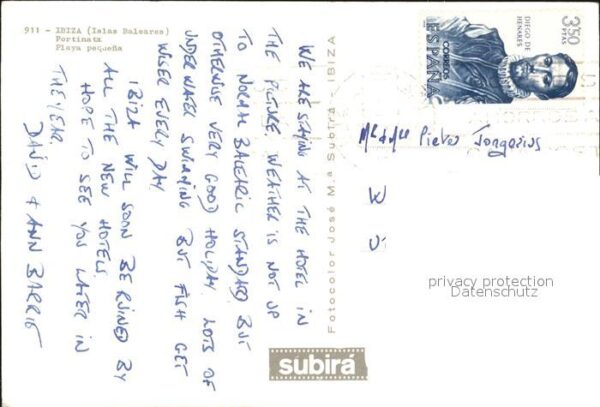 911 - IBIZA (Islas Baleares)
Portinatx
Playa pequeña
WE ARE STAYING AT THE HOTEL IN
THE PICTURE. WEATHER IS NOT UP
TO NORMAL BALEARIC STANDARD BUT
OTHERWISE VERY GOOD HOLIDAY. LOTS OF
UNDERWATER SWIMMING BUT FISH GET
WISER EVERY DAY.
IBIZA WILL SOON BE RUINED BY
ALL THE NEW HOTELS.
HOPE TO SEE YOU LATER IN
THE YEAR.
DAVID & ANN BARRIE
Fotocolor José M.ª Subirá - IBIZA
subirá
3'50
PTAS
DIEGO DE
HENARES
CORREOS
ESPAÑA
Pieter Jongerius
W
privacy protection
Datenschutz